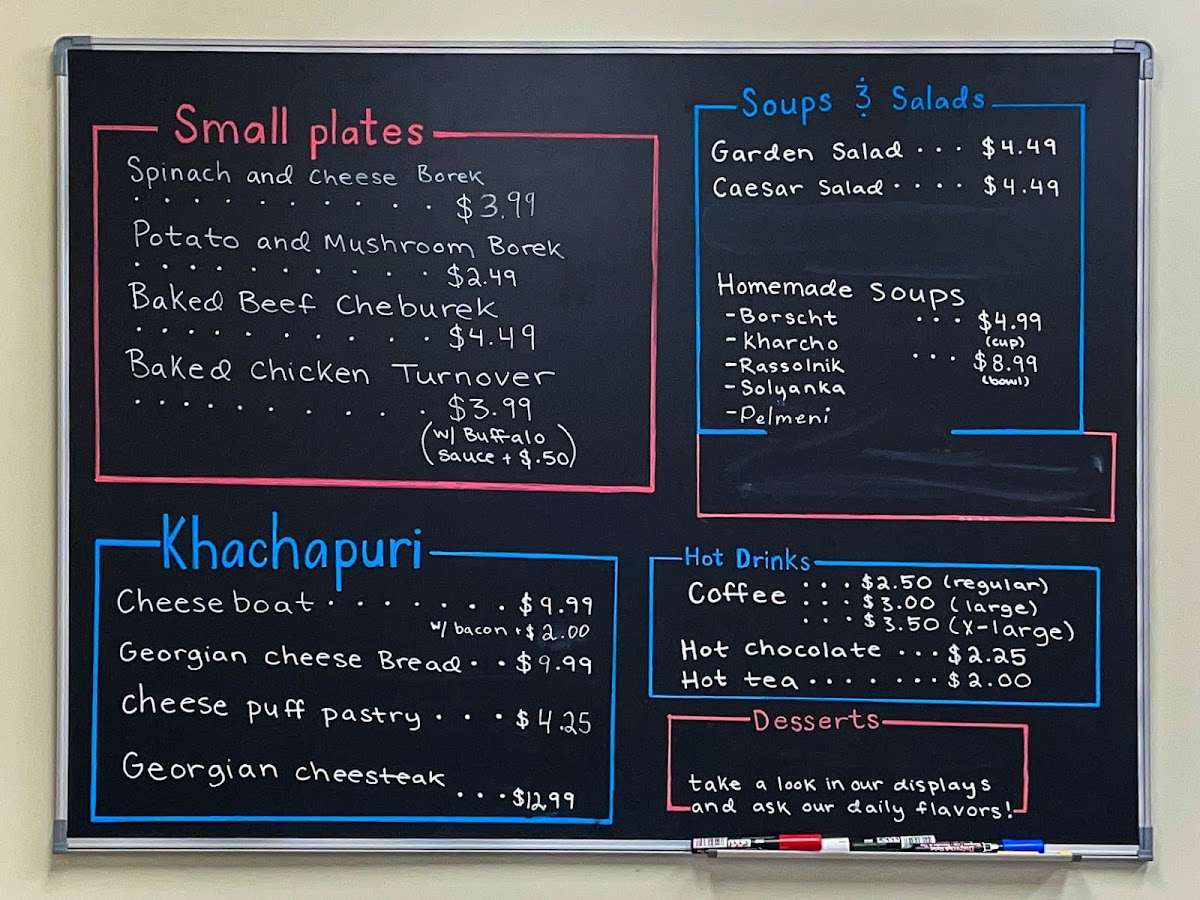 Small plates
Spinach and cheese Borek
. . . . . . . . . . . $3.99
Potato and Mushroom Borek
. . . . . . . . . . . $2.49
Baked Beef Cheburek
. . . . . . . . . . . $4.49
Baked Chicken Turnover
. . . . . . . . . . . $3.99
(w/ Buffalo
sauce + $.50)
Soups & Salads
Garden Salad . . . $4.49
Caesar Salad . . . . $4.49
Homemade soups
-Borscht . . . $4.99
(cup)
-Kharcho
. . . $8.99
-Rassolnik
(bowl)
-Solyanka
-Pelmeni
Khachapuri
Cheese boat . . . . . . . $9.99
w/ bacon + $2.00
Georgian cheese Bread . . $9.99
cheese puff pastry . . . $4.25
Georgian cheesteak
. . . $12.99
Hot Drinks
Coffee . . . $2.50 (regular)
. . . $3.00 (large)
. . . $3.50 (X-large)
Hot chocolate . . . $2.25
Hot tea . . . . . . . . $2.00
Desserts
take a look in our displays
and ask our daily flavors!